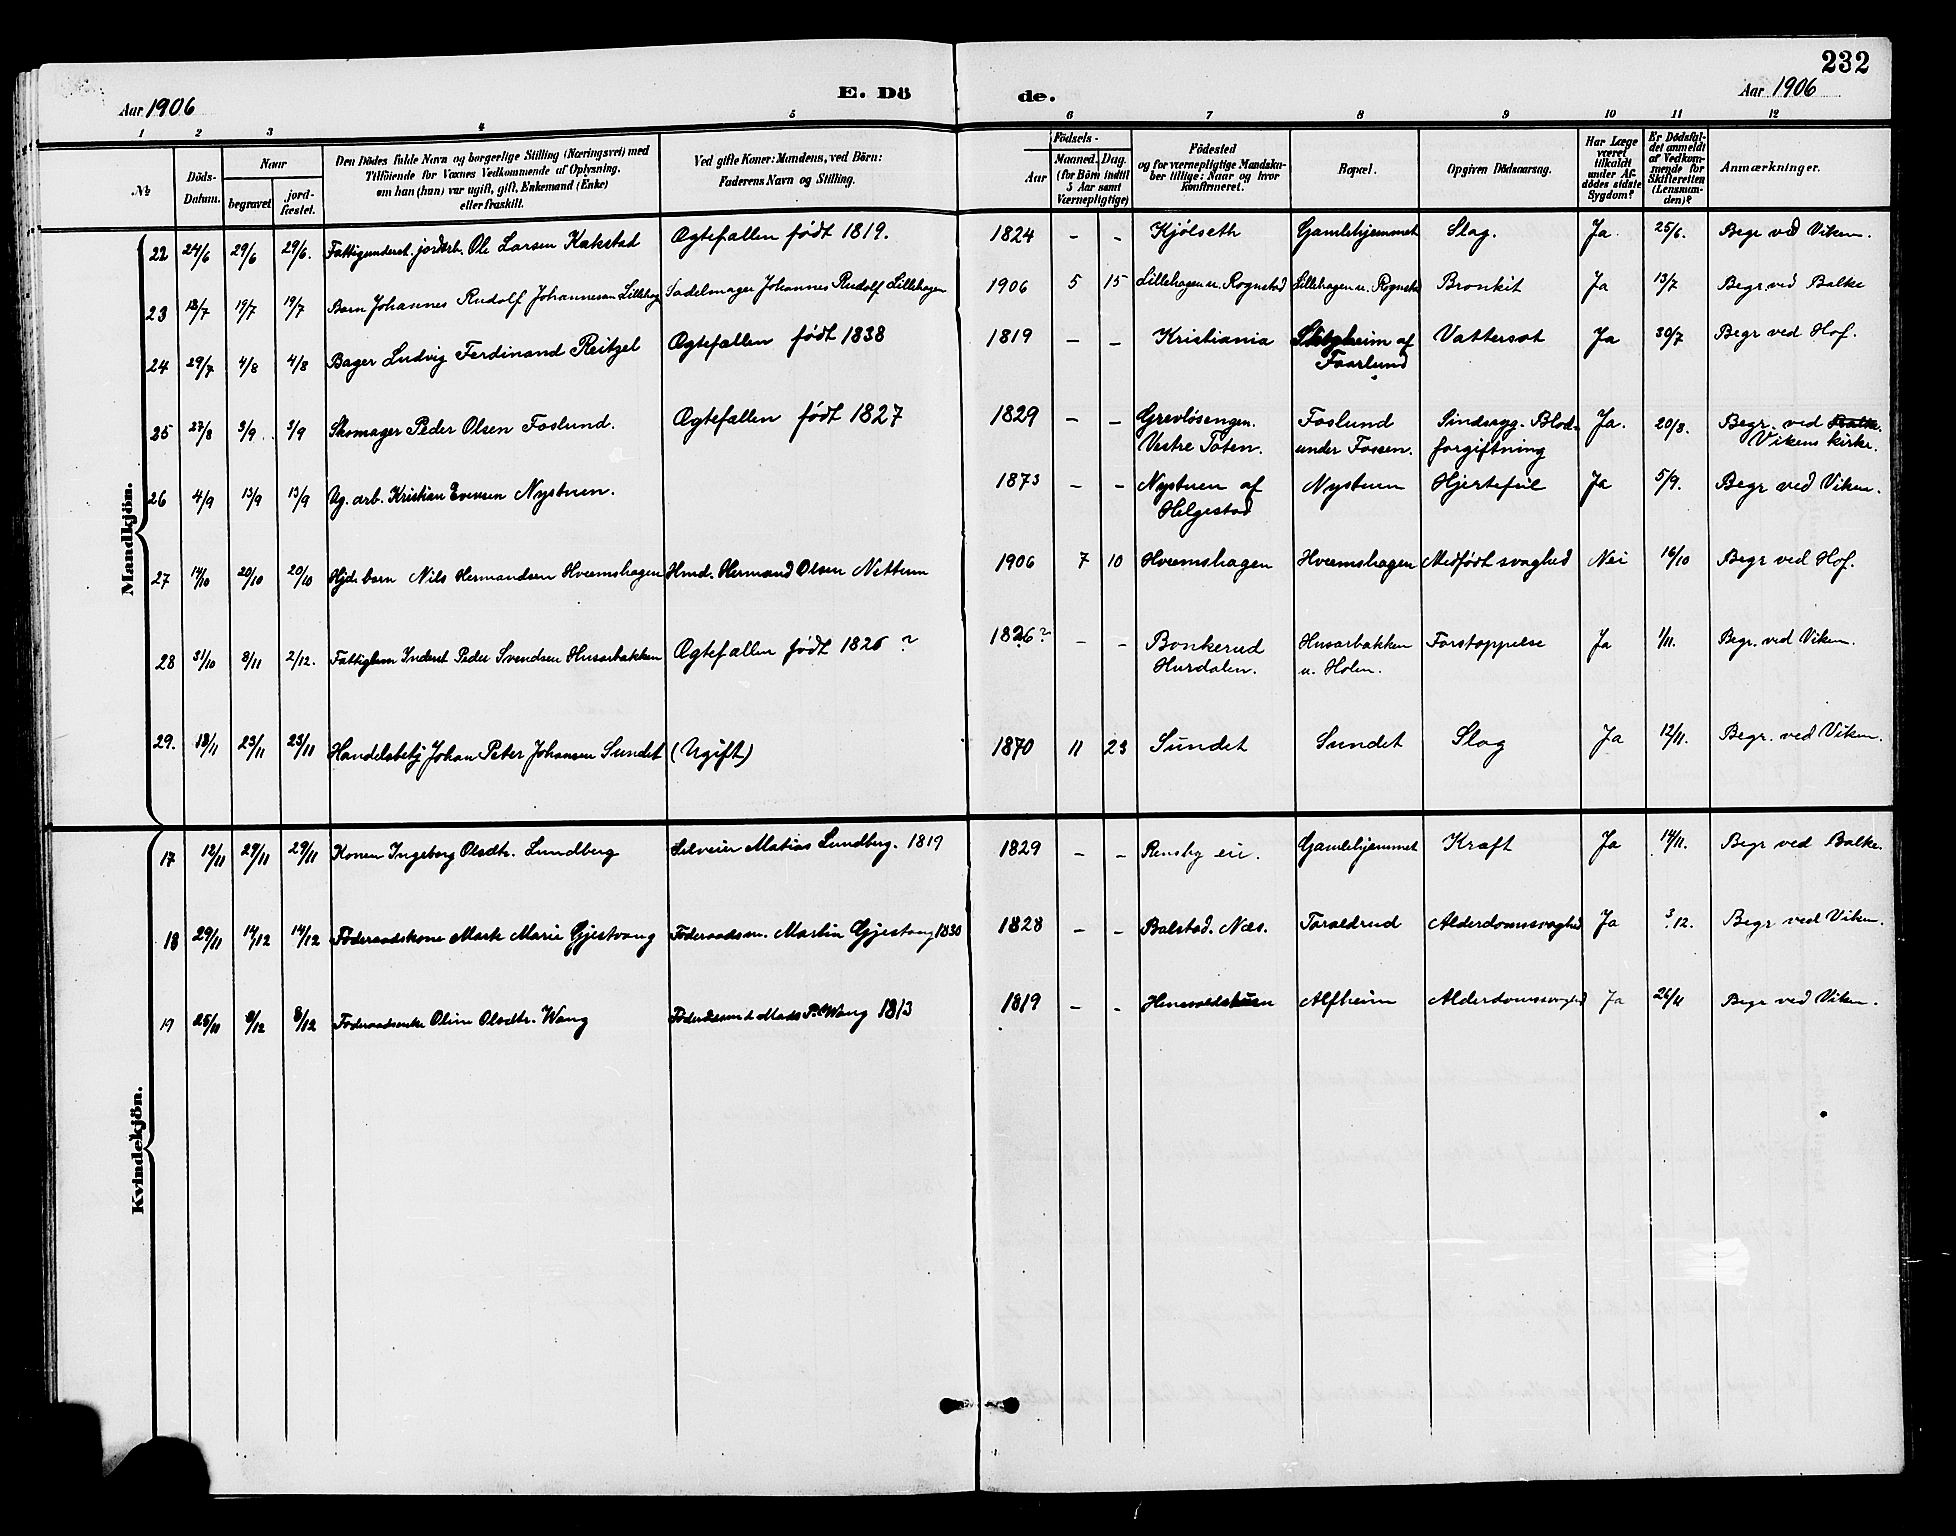 232
Aar 1906
E. Dö
de.
Aar 1906
1 2 3 4 5 6 7 8 9 10 11 12
№
Döds-Datum.
Naar
begravet
jordfæstet.
Den Dödes fulde Navn og borgerlige Stilling (Næringsvei) med
Tilföiende for Voxnes Vedkommende af Oplysning,
om han (hun) var ugift, gift, Enkemand (Enke)
eller fraskilt.
Ved gifte Koner: Mandens, ved Börn:
Faderens Navn og Stilling.
Födsels-
Aar
Maaned. Dag.
(for Börn indtil
5 Aar samt
Værnepligtige)
Födested
og for værnepligtige Mandskaber tillige: Naar og hvor
konfirmeret.
Bopæl.
Opgiven Dödsaarsag.
Har Læge
været
tilkaldt
under Afdödes sidste
Sygdom?
Er Dödsfaldet anmeldt
af Vedkommende for
Skifteretten
(Lensmanden)?
Anmærkninger.
Mandkjön.
22 24/6 29/6 29/6. Fattigunderst. jordarb. Ole Larsen Kakstad Ægtefællen født 1819. 1824 – – Kjølseth Gamlehjemmet Slag. Ja. 25/6. Begr ved Viken.
23 13/7 19/7 19/7 Barn Johannes Rudolf Johannesen Lillehagen Sadelmager Johannes Rudolf Lillehagen 1906 5 15 Lillehagen u. Rognstad Lillehagen u. Rognstad Bronkit Ja 13/7 Begr ved Balke
24 29/7 4/8 4/8 Bager Ludvig Ferdinand Reitzel Ægtefællen født 1838 1819 – – Kristiania af Faarlund Vattersot Ja 30/7 Begr ved Hof.
25 27/8 3/9. 3/9 Skomager Peder Olsen Foslund. Ægtefællen født 1827 1829 – – Grevløsengen. Vestre Toten. Foslund under Fossen. Sindssyg. Blodforgiftning Ja. 20/8. Begr. ved Balke. Vikens kirke.
26 4/9 13/9 13/9 Ug. arb. Kristian Evensen Nystuen. 1873 – – Nystuen af Helgestad Nystuen Hjertefeil Ja 5/9. Begr ved Viken.
27 14/10 20/10 20/10 Hjdøbt barn Nils Hermandsen Hvemshagen Hmd. Hermand Olsen Nettum 1906 7 10 Hvemshagen Hvemshagen Medfødt svaghed Nei 16/10 Begr ved Hof.
28 31/10 8/11 2/12. Fattiglem Inderst Peder Svendsen Husarbakken Ægtefællen født 1826 ? 1826? – – Bonkerud Hurdalen. Husarbakken u. Holen. Forstoppelse Ja 1/11. Begr. ved Viken.
29. 18/11 23/11 23/11 Handelsbetj Johan Peter Johansen Sundet (Ugift) 1870 11 23 Sundet Sundet Slag Ja 12/11. Begr. ved Viken.
Kvindekjön.
17 12/11 29/11 29/11 Konen Ingeborg Olsdtr. Lundberg Matias Lundberg. 1819 1829 – – Rensby eie. Gamlehjemmet Kræft Ja 14/11. Begr ved Balke.
18 29/11 14/12 14/12 Føderaadskone Marte Marie Gjestvang Føderaadsm. Martin Gjestvang 1830 1828 – – Balstad. Næs. Taraldrud Alderdomssvaghed Ja 3/12. Begr ved Viken.
19 25/11 8/12 8/12 Føderaadsenke Oline Olsdtr. Wang Mads P. Wang 1813 1819 – – Alfheim Alderdomssvaghed Ja 26/11 Begr ved Viken.